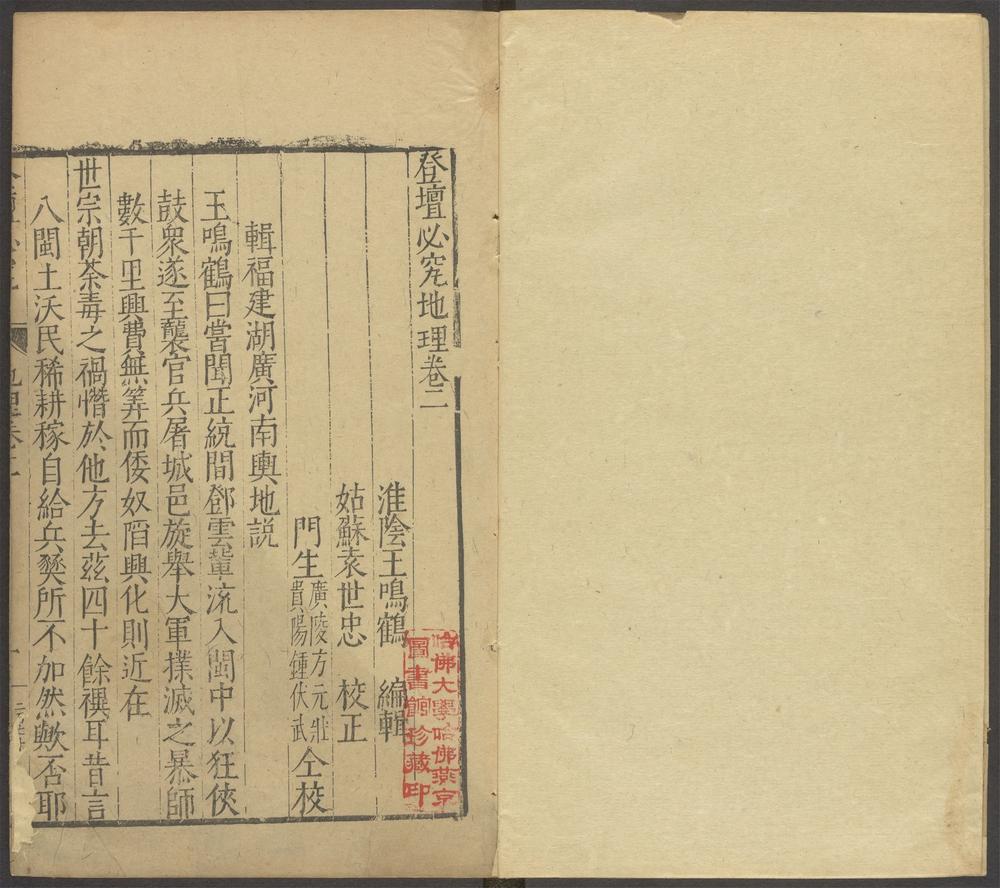 登壇必究地理卷二
淮陰王鳴鶴　編輯
姑蘇袁世忠　校正
門生廣陵方元壯貴陽鍾伏武仝校
輯福建湖廣河南輿地説
王鳴鶴曰嘗聞正統間鄧雲輩流入閩中以狂俠
鼓衆遂至襲官兵屠城邑旋舉大軍撲滅之暴師
數千里興費無筭而倭奴陷興化則近在
世宗朝荼毒之禍憯於他方去兹四十餘禩耳昔言
八閩土沃民稀耕稼自給兵燹所不加然歟否耶
地理卷二
哈佛大學哈佛燕京
圖書館珍藏印